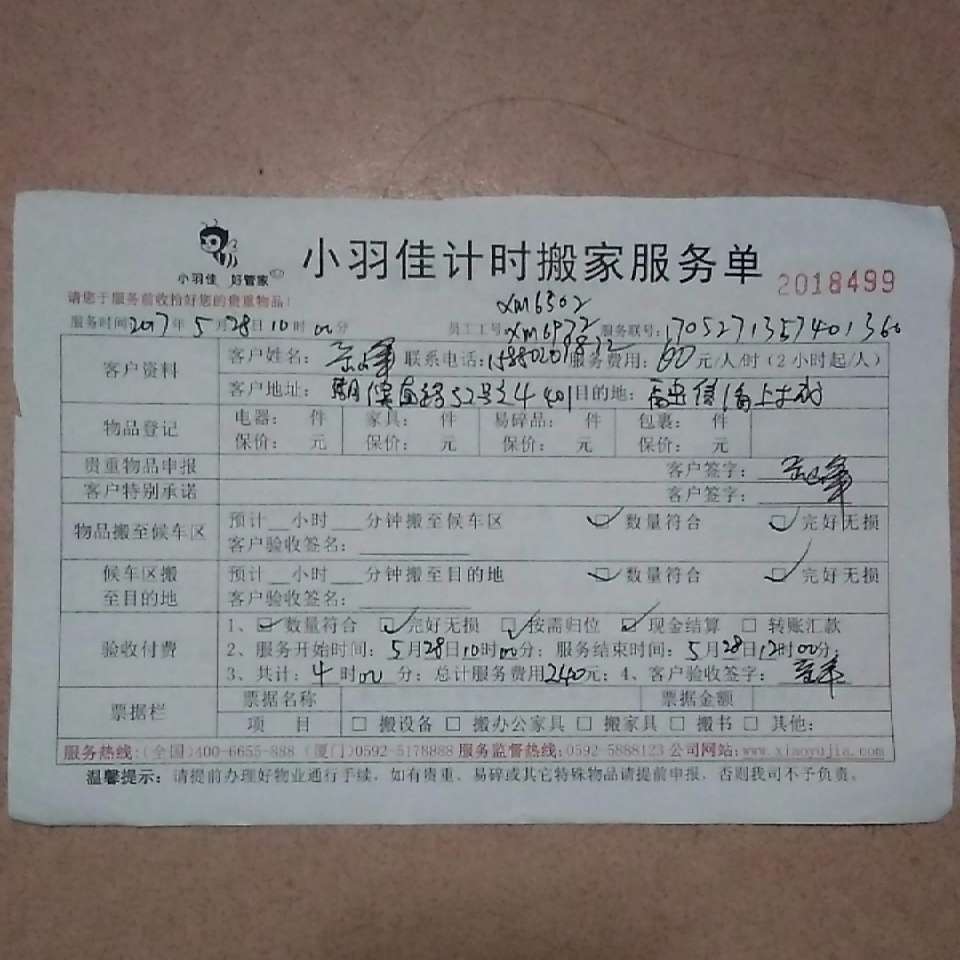 小羽佳 好管家
小羽佳计时搬家服务单
2018499
请您于服务前收拾好您的贵重物品!
xm6502
服务时间2017年5月28日10时00分 员工工号xm6972 服务联号:170527135740136
客户资料 客户姓名: 联系电话: 服务费用:60元/人/时(2小时起/人)
客户地址: 52号之4 401 目的地:
物品登记 电器: 件 家具: 件 易碎品: 件 包裹: 件
保价: 元 保价: 元 保价: 元 保价: 元
贵重物品申报 客户签字:
客户特别承诺 客户签字:
物品搬至候车区 预计__小时___分钟搬至候车区 ☑数量符合 ☑完好无损
客户验收签名:
候车区搬至目的地 预计__小时___分钟搬至目的地 ☑数量符合 ☑完好无损
客户验收签名:
验收付费 1、☑数量符合 ☑完好无损 ☑按需归位 ☑现金结算 □转账汇款
2、服务开始时间:5月28日10时00分;服务结束时间:5月28日12时00分;
3、共计:4时00分;总计服务费用240元;4、客户验收签字:
票据栏 票据名称 票据金额
项 目 □搬设备 □搬办公家具 □搬家具 □搬书 □其他:
服务热线:(全国)400-6655-888 (厦门)0592-5178888 服务监督热线:0592-5888123 公司网站:www.xiaoyujia.com
温馨提示:请提前办理好物业通行手续,如有贵重、易碎或其它特殊物品请提前申报,否则我司不予负责。